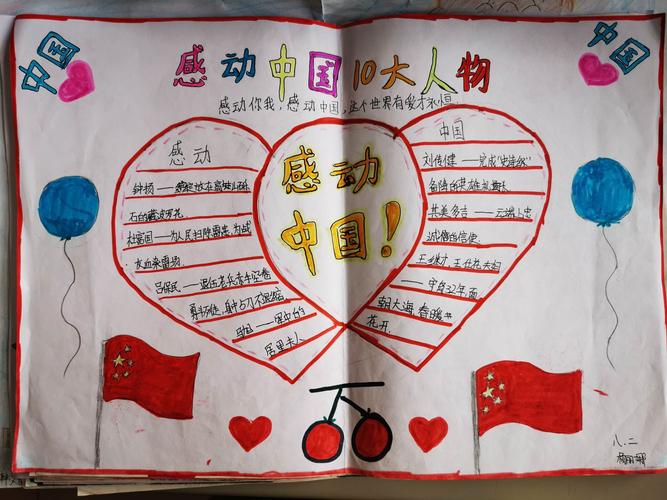 中国
感动中国10大人物
中国
感动你我,感动中国,这个世界有爱才永恒.
感动
钟扬——
石的藏波罗花
杜富国——为人民扫除雷患,为战
友血染雷场
吕保民——退伍老兵赤手空卷
勇斗歹徒,身占刀不退缩
马旭——军中的
居里夫人
感动
中国!
中国
刘传健——完成"史诗级"
备降的英雄机长
其美多吉——云端上忠
诚的信使
王继才,王仕花夫妇
——守岛32年面
朝大海,春暖
花开
八.二